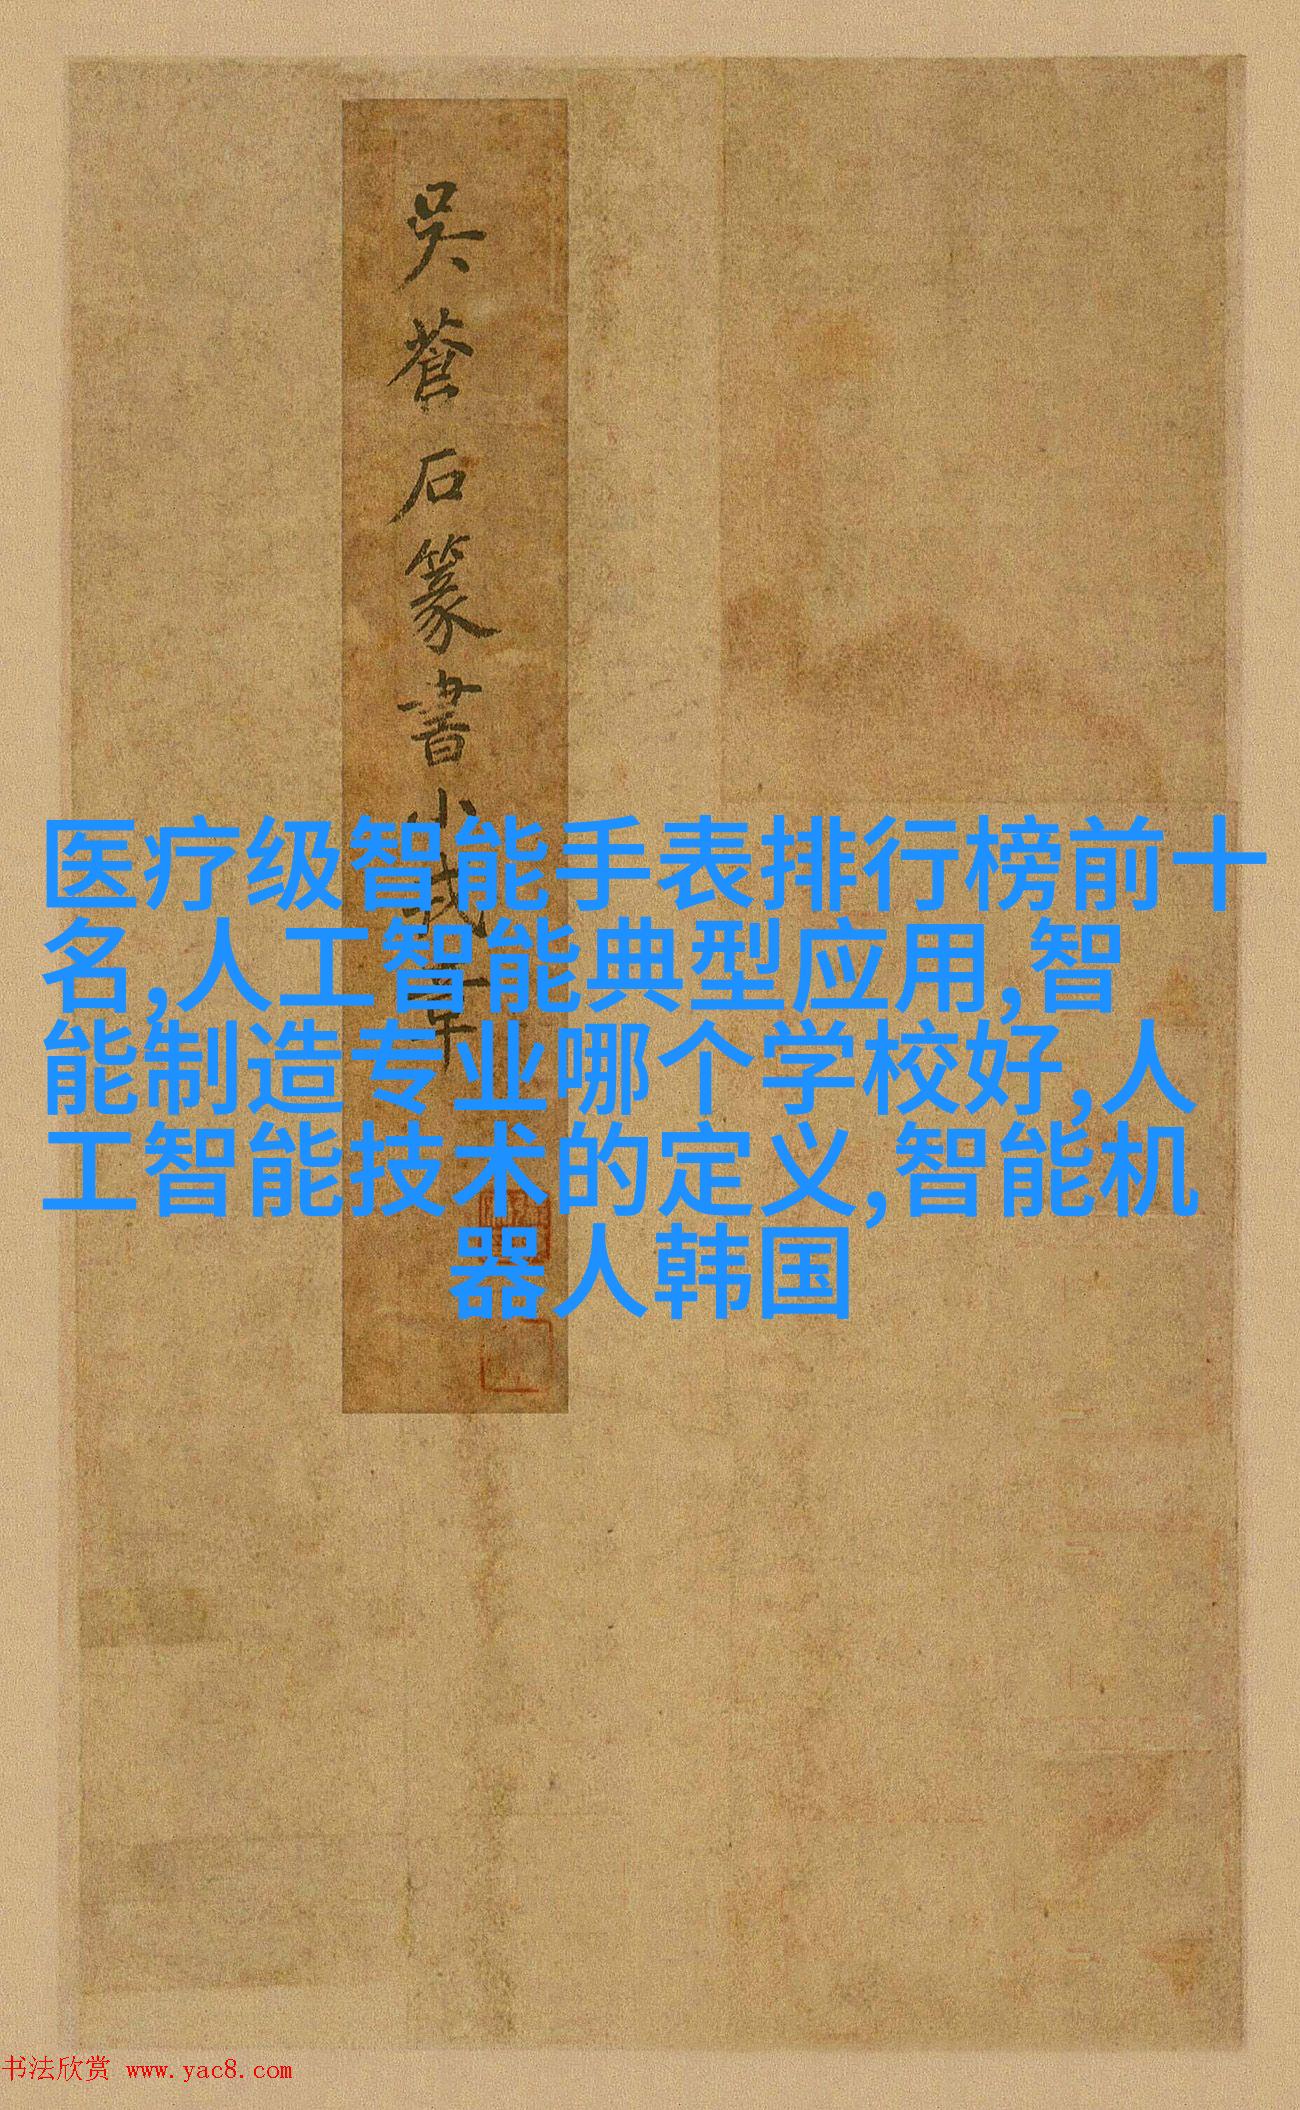 吳蒼石篆書小戎章
医疗级智能手表排行榜前十
名,人工智能典型应用,智
能制造专业哪个学校好,人
工智能技术的定义,智能机
器人韩国
书法欣赏 www.yac8.com